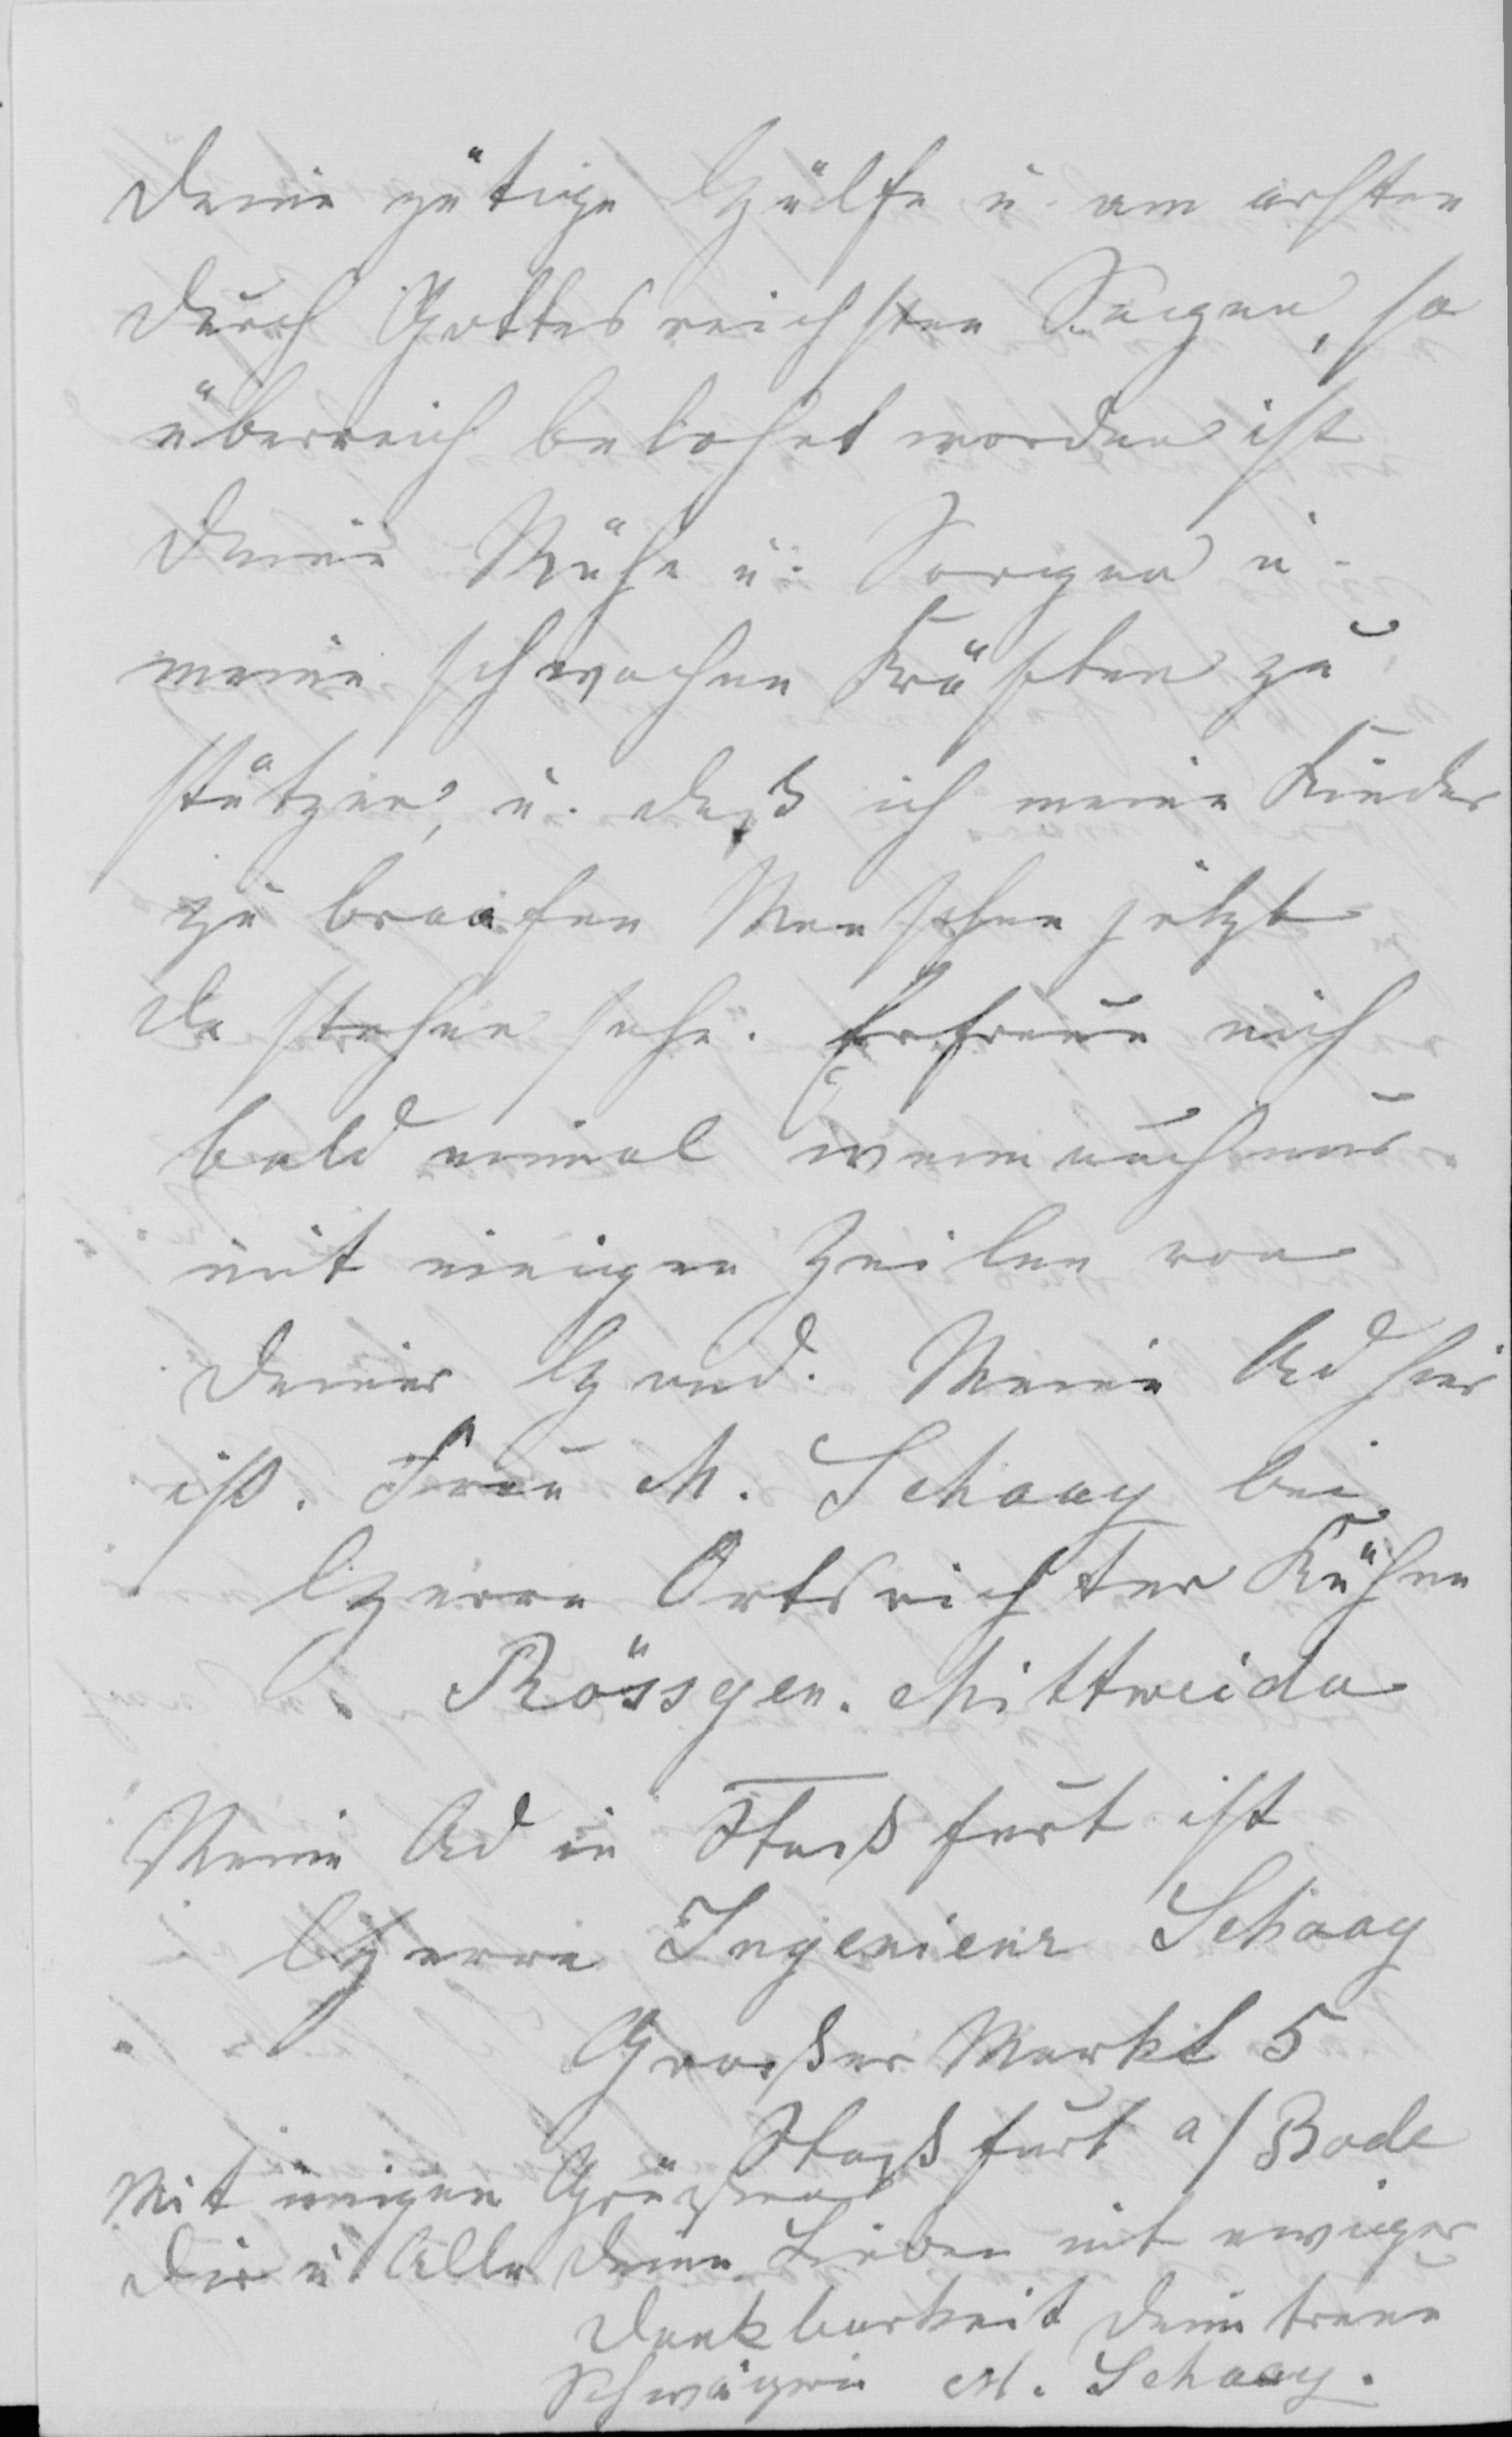 Deine gütige Hülfe u. am ersten
durch Gottes reichsten Seegen, so
überreich belohnt worden ist
Deine Mühe u. Sorgen u.
meine schwachen Kräften zu
stützen, u. daß ich meine Kinder
zu braafen Menschen jetzt
da stehen sehe. Erfreue mich
bald einmal wenn auch nur
mit einigen Zeilen von
Deiner Hand. Meine Ad hier
ist. Frau M. Schaay bei
Herrn Ortsrichter Kühn
Rössgen. Mittweida
Meine Ad in Staßfurt ist
Herrn Ingenieur Schaay
Großer Markt 5
Staßfurt a/Bode
Mit innigen Grüßen
Dir u. Alle Deine Lieben mit ewiger
Dankbarkeit Deine treue
Schwägerin M. Schaay.